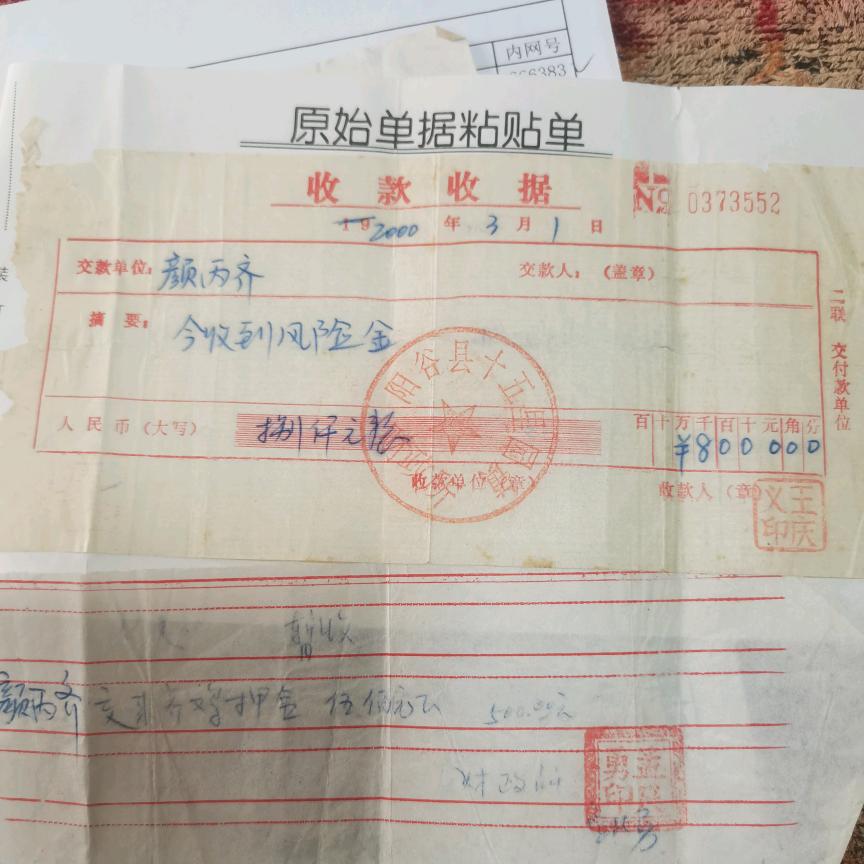 内网号
66383
原始单据粘贴单
收款收据
№ 0373552
19 2000 年 3 月 1 日
交款单位: 颜丙齐 交款人: (盖章)
摘 要: 今收到风险金
人民币(大写) 捌仟元整
百十万千百十元角分
¥800000
收款单位(章)
收款人(章)
阳谷县十五里园镇
王庆义印
二联 交付款单位
暂收
颜丙齐交来 押金 伍佰元 500.00元
财政所
男印